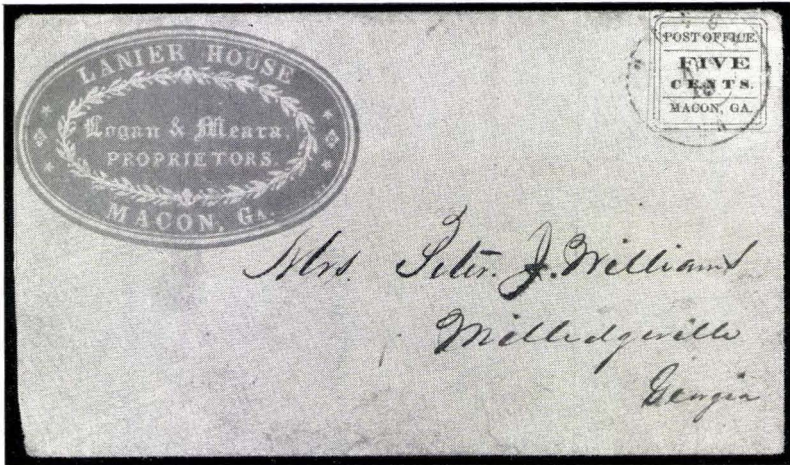 LANIER HOUSE
Logan & Meara,
PROPRIETORS.
MACON, GA.
POST OFFICE.
FIVE
CENTS.
MACON, GA.
Mrs. Peter. J. Williams
Milledgeville
Georgia